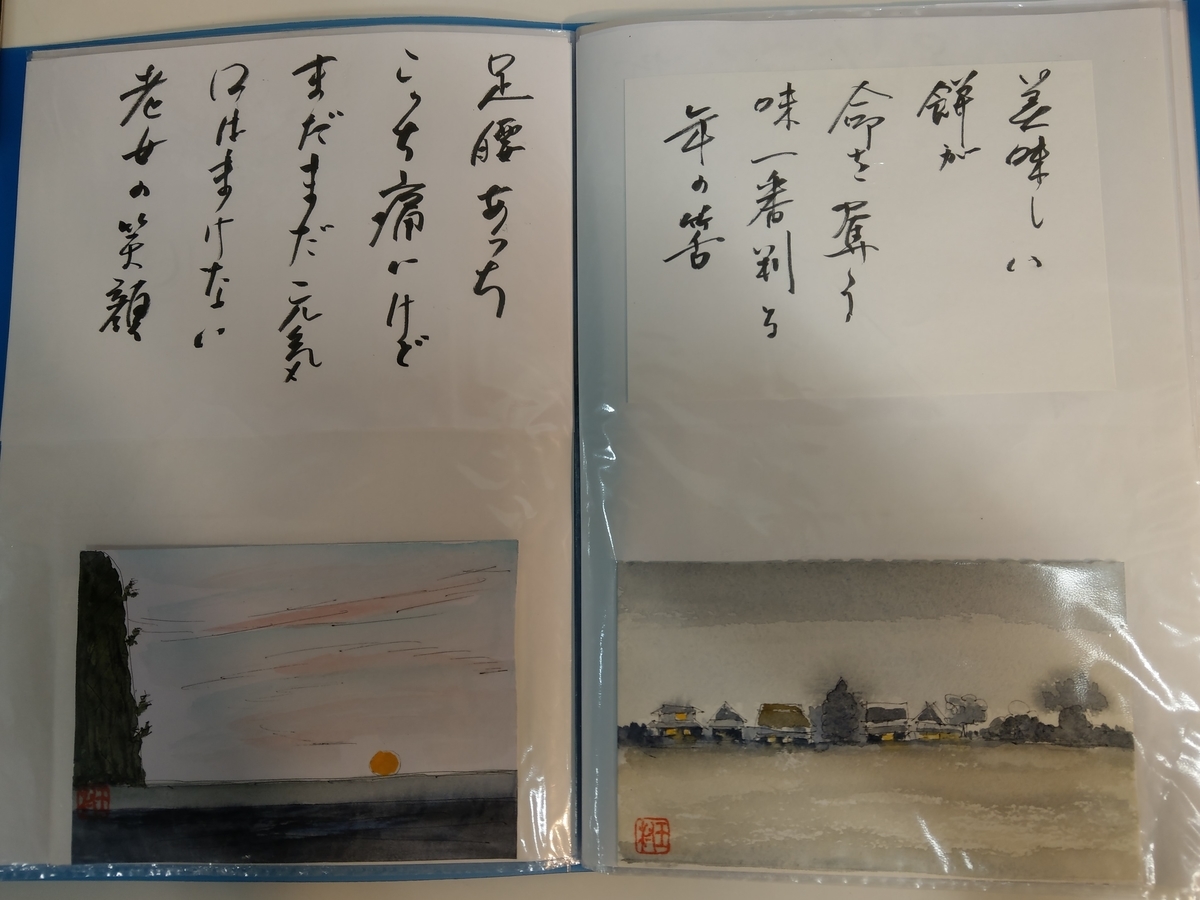 美味しい
餅が
命を奪う
味一番判る
年の筈
足腰あっち
こっち痛いけど
まだまだ元気
口はまけない
老女の笑顔